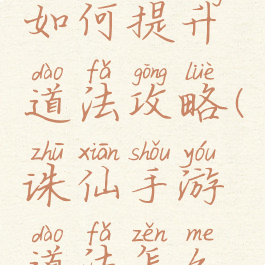 如何提升
dào fǎ gōng lüè
道法攻略(
zhū xiān shǒu yóu
诛仙手游
dào fǎ zěn me
道法怎么